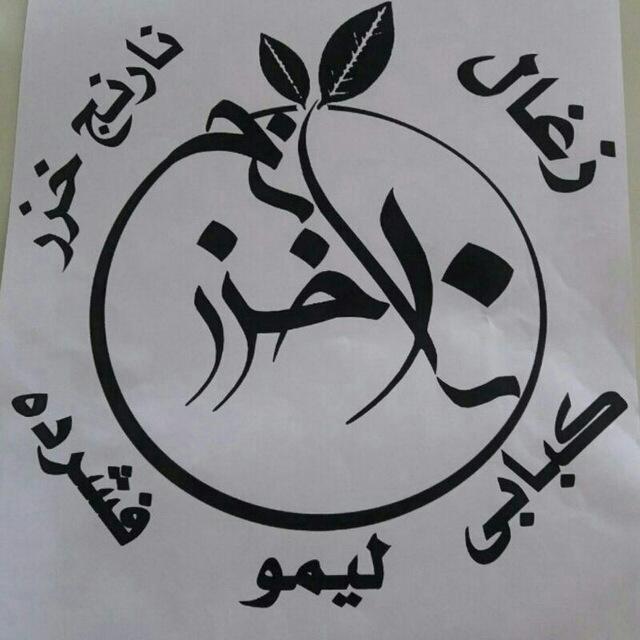 نارنج خزر
ذغال
نارنج خزر
کبابی
فشرده
لیمو